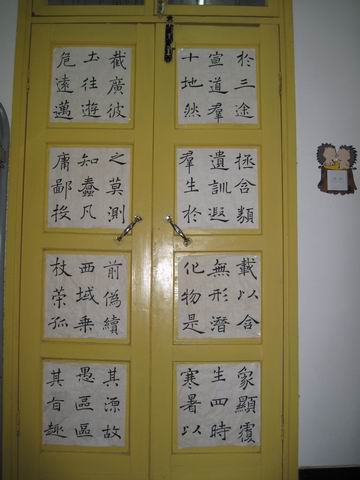 於三途
宣道羣
十地然
拯含類
遺訓遐
羣生於
載以含
無形潛
化物是
象顯覆
生四時
寒暑以
截廣彼
土往遊
危遠邁
之莫測
知蠢凡
庸鄙投
前偽續
西域乘
杖策孤
其源故
愚區區
其旨趣